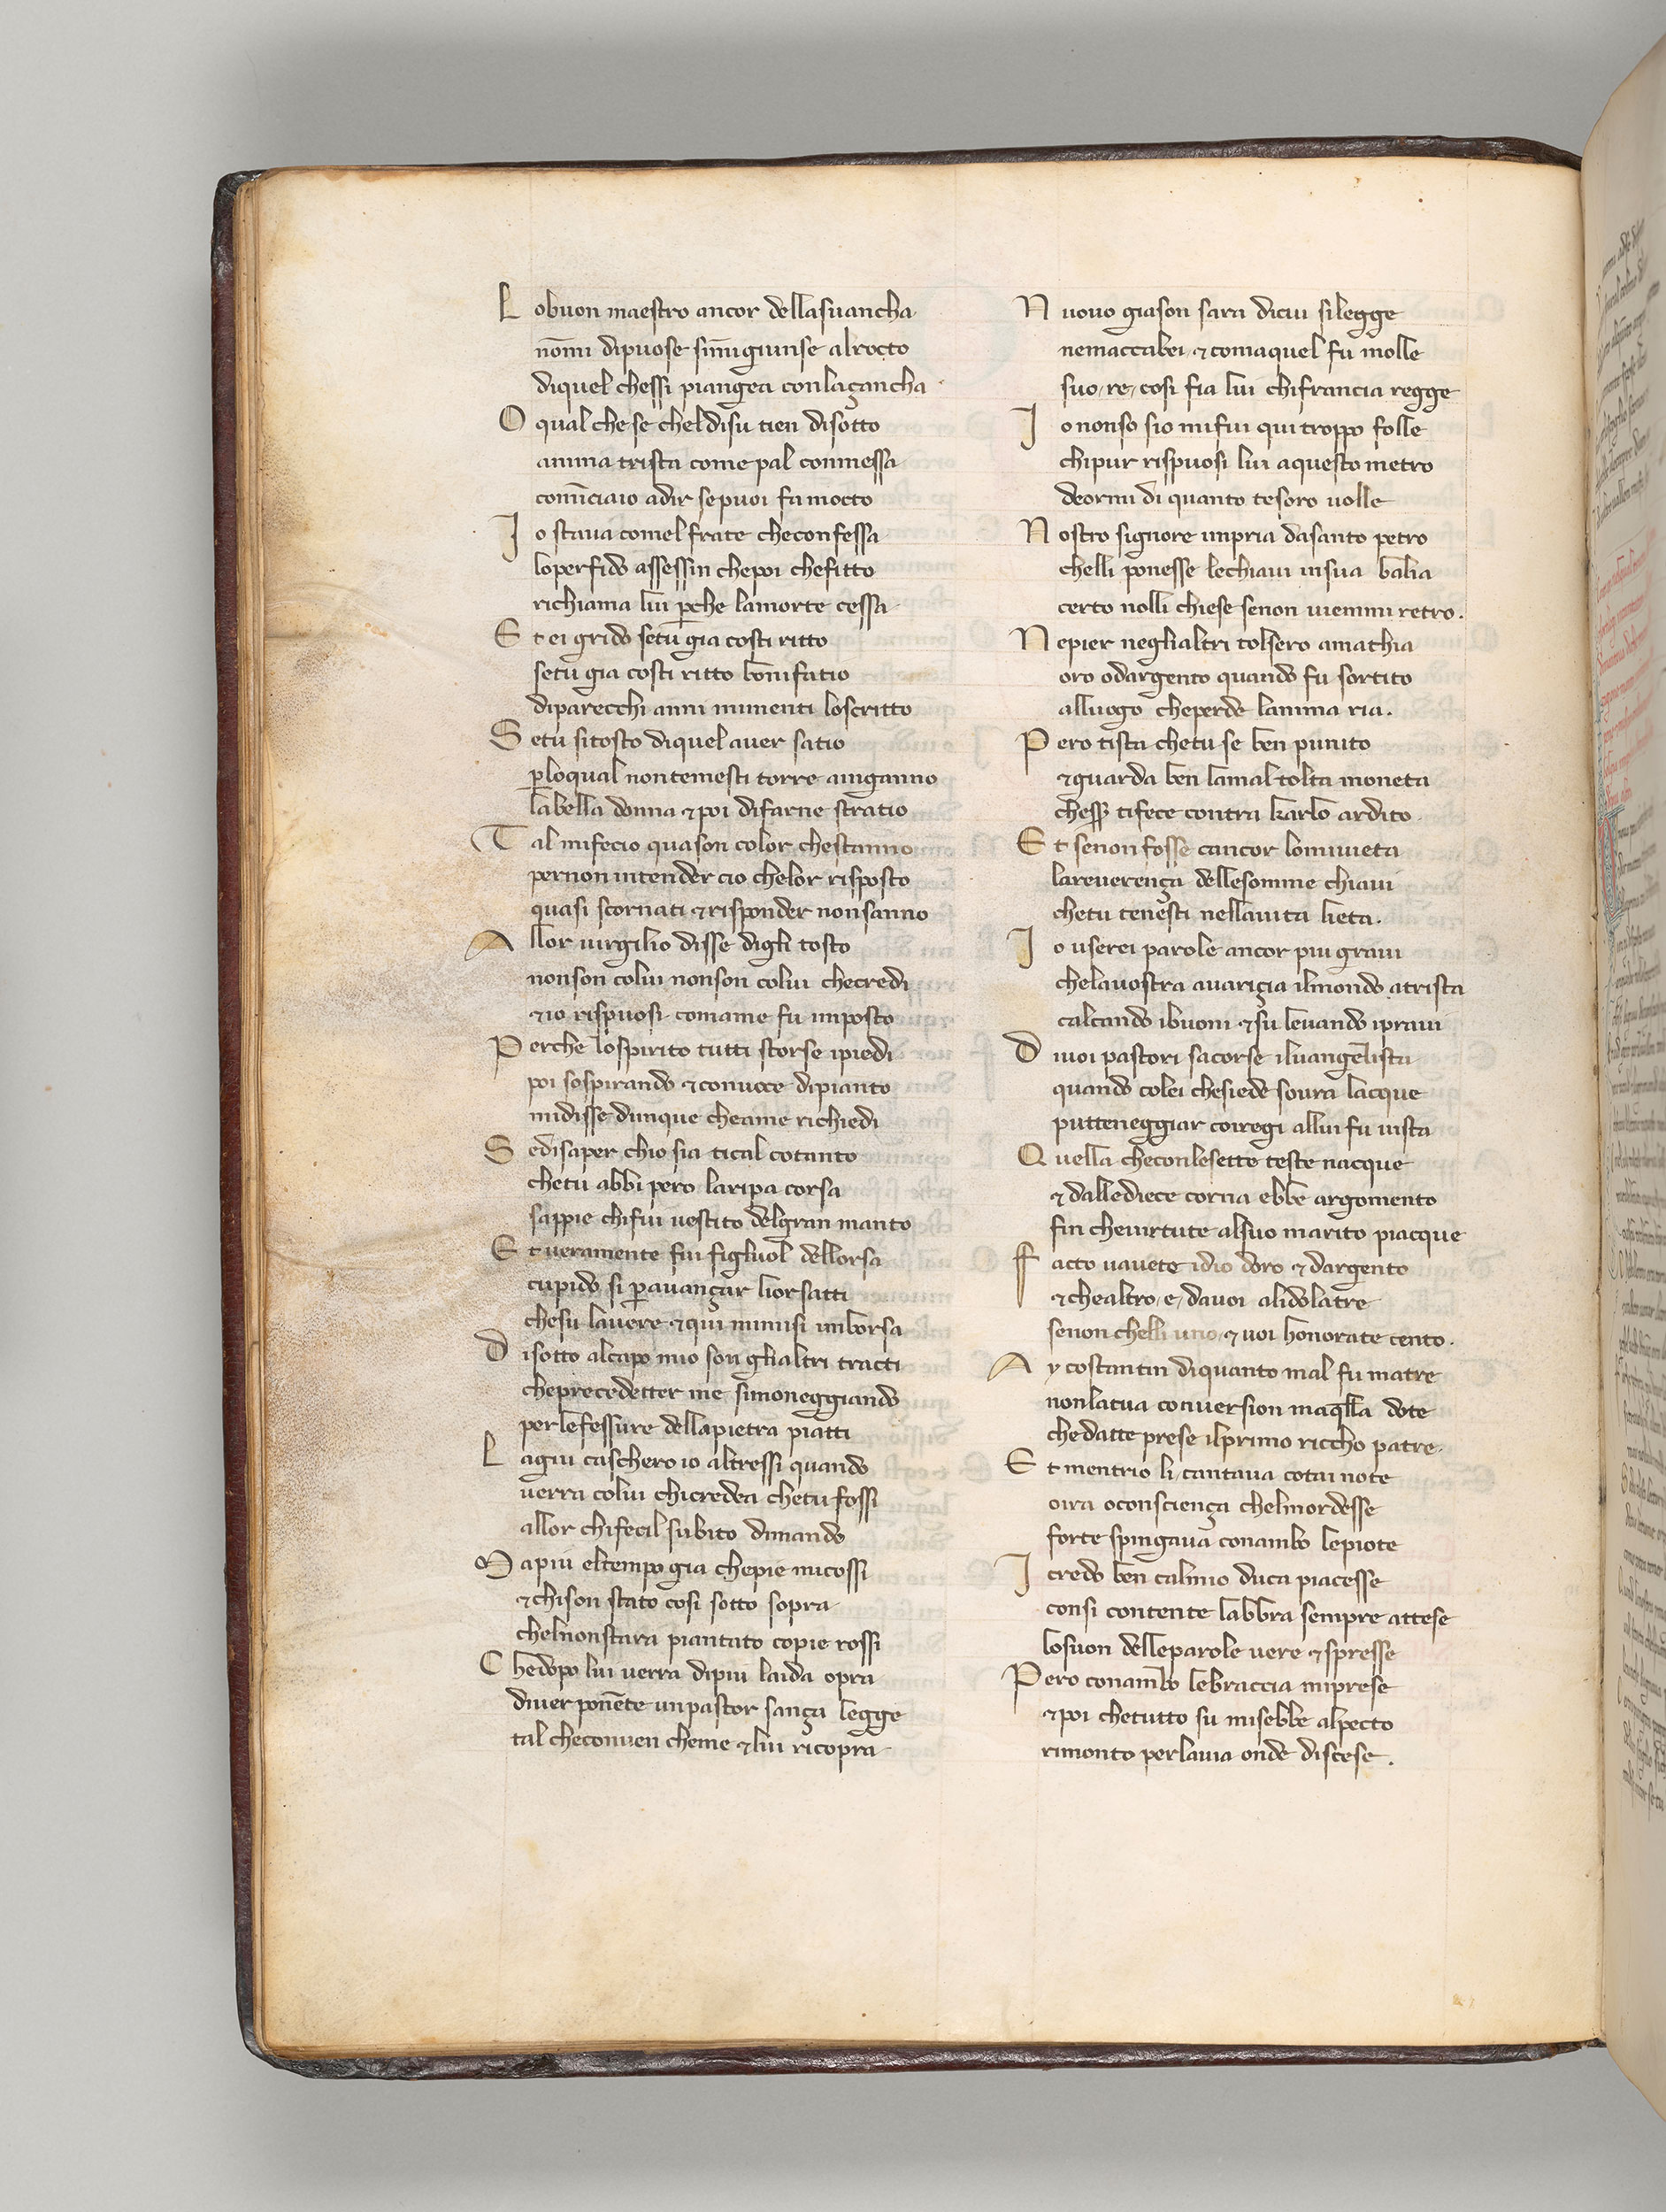 L obuon maestro ancor dellasuancha
nōmi dipuose sim̄igiunse alrocto
diquel chessi piangea conlaçancha
O qual che se cheldisu tien disotto
anima trista come pal commessa
com̄ciaio adir sepuoi fa mocto
I o staua comel frate checonfessa
loperfido assessin chepoi chefitto
richiama lui ꝑche lamorte cessa
E t ei grido setū gia costi ritto
setu gia costi ritto bonifatio
diparecchi anni mimenti loscritto
S etu sitosto diquel auer satio
ꝑloqual nontemesti torre aninganno
labella donna ⁊ poi difarne stratio
T al mifecio quason color chestanno
pernonintender cio chelor risposto
quasi scornati ⁊ risponder nonsanno
A llor uirgilio disse digli tosto
nonson colui nonson colui checredi
⁊ io rispuosi comame fu imposto
P erche lospirito tutti storse ipiedi
poi sospirando ⁊ conuoce dipianto
midisse dunque cheame richiedi
S edisaper chio sia tical cotanto
chetu abbi pero laripa corsa
sappie chifui uestito delgran manto
E t ueramente fui figluol dellorsa
cupido si ꝑauançar liorsatti
chesu lauere ⁊ qui mimisi imborsa
D isotto alcapo mio son glialtri tracti
cheprecedetter me simoneggiando
perlefessure dellapietra piatti
L agiu caschero io altressi quando
uerra colui chicredea chetu fossi
allor chifecil subito dimando
M apiu eltempo gia chepie micossi
⁊ chison stato cosi sotto sopra
chelnonstara piantato copie rossi
C hedopo lui uerra dipiu laida opra
diuer ponēte unpastor sança legge
tal checonuen cheme ⁊ lui ricopra
N uouo giason sara dicui silegge
nemaccabei ⁊ comaquel fu molle
suo re cosi fia lui chifrancia regge
I o nonso sio mifui qui troppo folle
chipur rispuosi lui aquesto metro
deormi di quanto tesoro uolle
N ostro signore impria dasanto petro
chelli ponesse lechiaui insua balia
certo nolli chiese senon uiemmi retro.
N epier neglialtri tolsero amathia
oro odargento quando fu sortito
alluogo cheperde lanima ria.
P ero tista chetu se ben punito
⁊ guarda ben lamal tolta moneta
chesser tifece contra karlo ardito
E t senon fosse cancor lomiuieta
lareuerença dellesomme chiaui
chetu tenesti nellauita lieta.
I o userei parole ancor piu graui
chelauostra auariçia ilmondo atrista
calcando ibuoni ⁊ su leuando ipraui
D iuoi pastori sacorse iluangelista
quando colei chesiede soura lacque
putteneggiar coiregi allui fu uista
Q uella checonlesette teste nacque
⁊ dallediece corna ebbe argomento
fin cheuirtute alsuo marito piacque
F acto uauete idio doro ⁊ dargento
⁊ chealtro e dauoi alidolatre
senon chelli uno ⁊ uoi honorate cento.
A y costantin diquanto mal fu matre
nonlatua conuersion maqlla dote
chedatte prese ilprimo riccho patre
E t mentrio li cantaua cotai note
oira oconsciença chelmordesse
forte spingaua conambo lepiote
I credo ben calmio duca piacesse
consi contente labbra sempre attese
losuon delleparole uere ⁊ spresse
P ero conambo lebraccia miprese
⁊ poi chetutto su misebbe alpecto
rimonto perlauia onde discese.